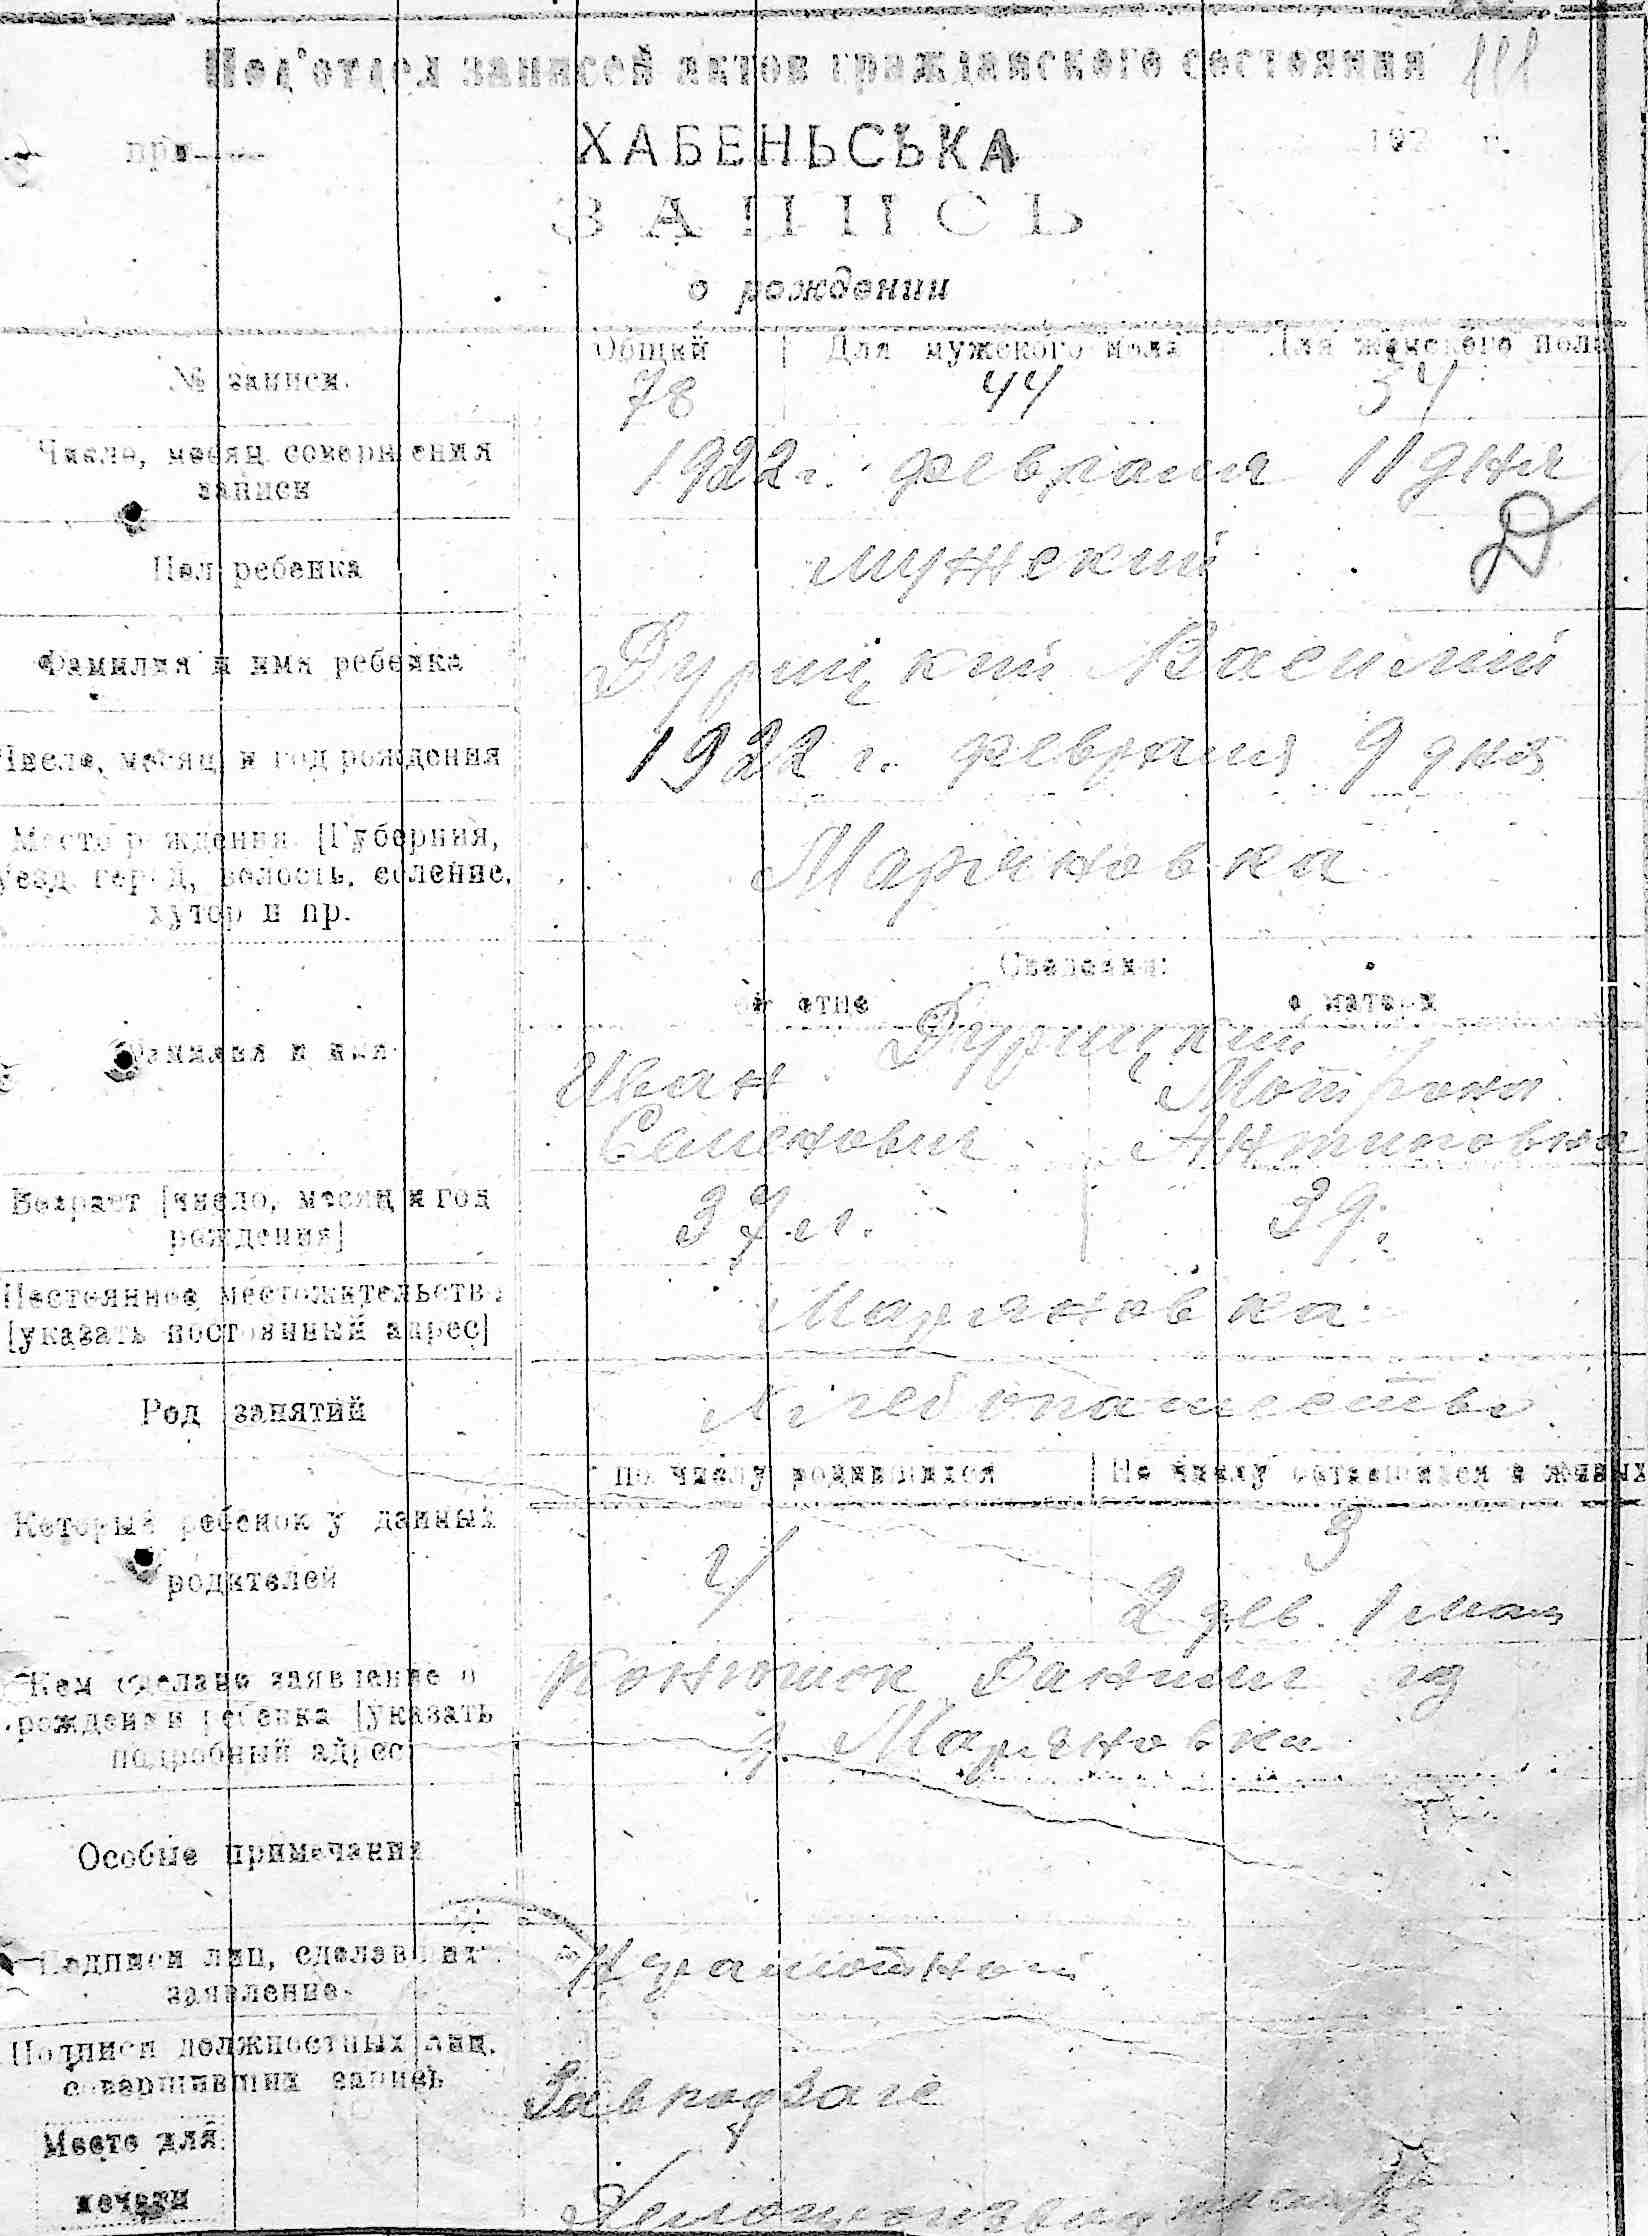 Под'отдел записей актов гражданского состояния
при
ХАБЕНЬСЬКА
192 г.
ЗАПИСЬ
о рождении
№ записи.
Общий Для мужского пола Для женского пола
78 44 34
Число, месяц совершения записи
1922 г. февраля 11 дня
Пол ребенка
мужский
Фамилия и имя ребенка
Дурицкий Василий
Число, месяц и год рождения
1922 г. февраля 9 дня
Место рождения [Губерния,
уезд, город, волость, селение,
хутор и пр.
Маряновка
Сведения:
об отце о матери
Фамилия и имя
Дурицкий
Иван Мотрона
Семенович Антиповна
Возраст [число, месяц и год
рождения]
37 л. 39.
Постоянное местожительство
[указать постоянный адрес]
Маряновка
Род занятий
Хлебопашество
По числу родившихся По числу оставшихся в живых
Который ребенок у данных
родителей
4 3
2 дев. 1 мал
Кем сделано заявление о
рождении ребенка [указать
подробный адрес
Конюшок Даниил
Маряновка
Особые примечания
Подписи лиц, сделавших
заявление.
Подписи должностных лиц,
совершивших запись
Завподзагс
Место для
печати